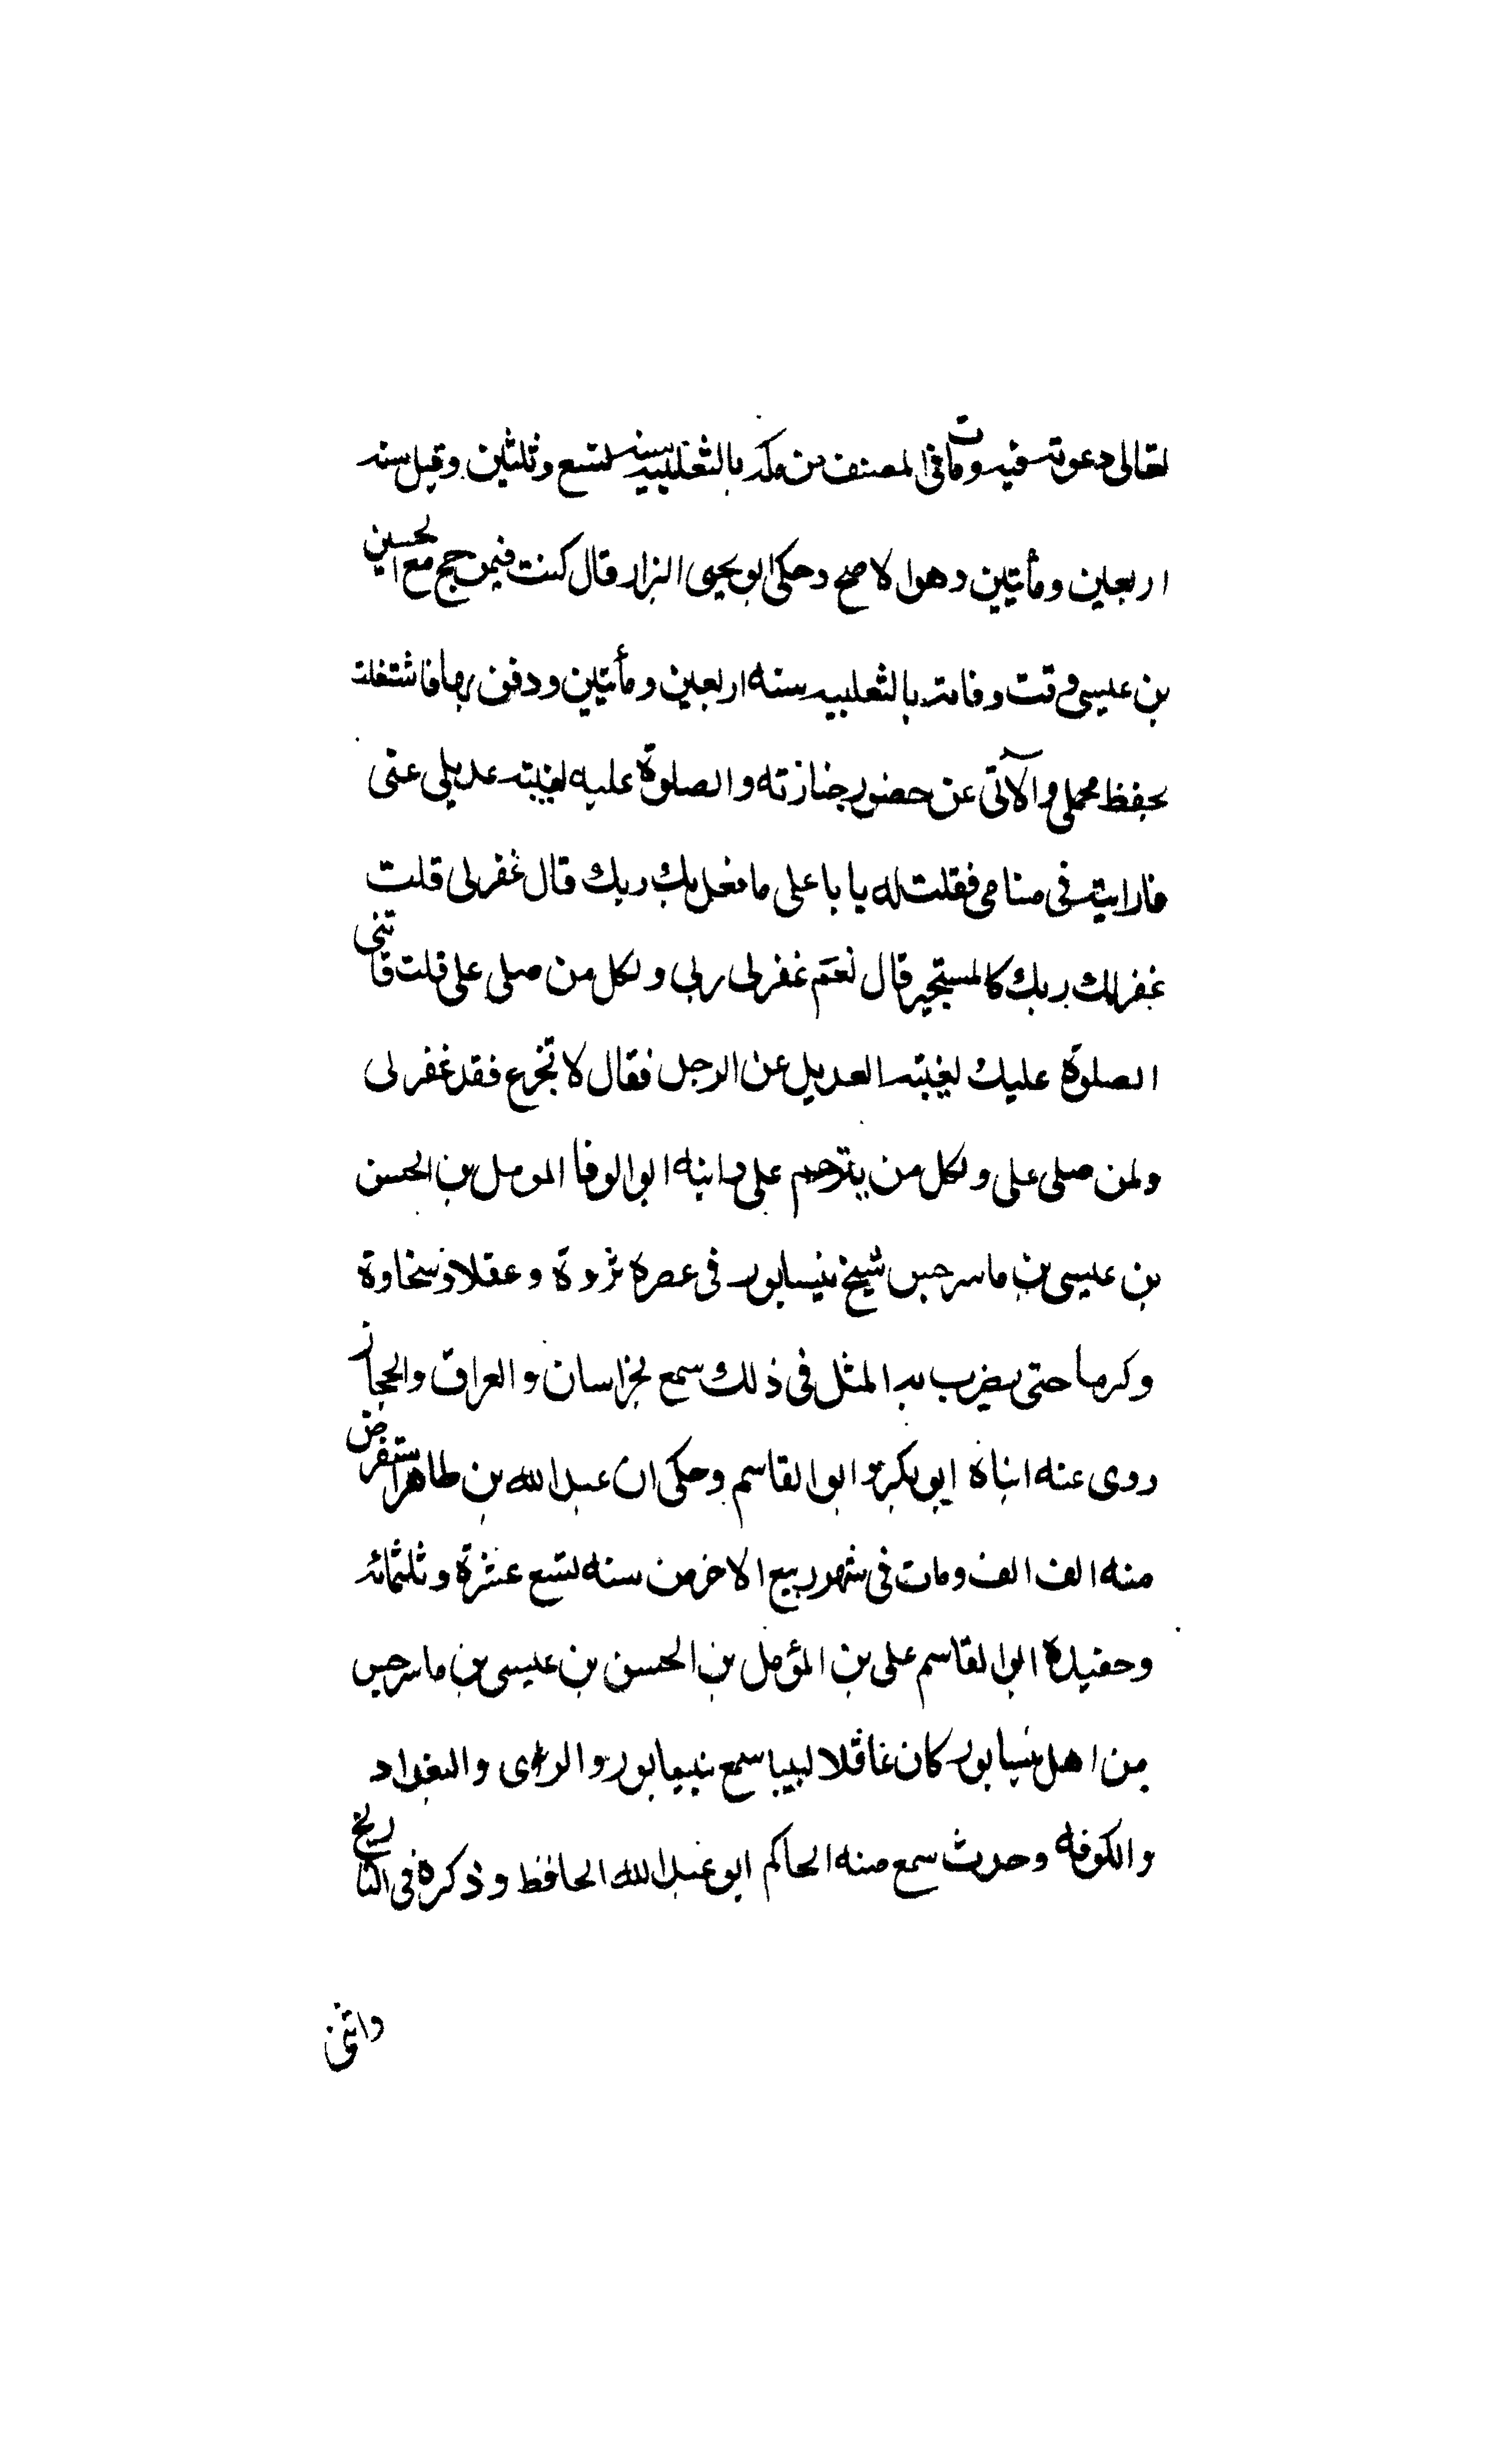 تعالى دعوته فيه ومات فى المصنف من مكه بالثعلبيه سنه تسع وثلثين وقيل سنه
اربعين ومأتين وهو الاصح وحكى ابو يحيى البزار قال كنت فيمن حج مع الحسين
بن عيسى وقت وفاته بالثعلبيه سنه اربعين ومأتين ودفن بها فاشتغلت
بحفظ محملى والآتى عن حضور جنازته والصلوة عليه لغيبته عديلى عنى
فارايته فى منامى فقلت له يا با على ما فعل بك ربك قال غفر لى قلت
غفر لك ربك كالمستجير قال نعم غفر لى ربى ولكل من صلى على قلت فاتنى
الصلوة عليك لغيبته العديل عن الرجل فقال لا تجزع فقد غفر لى
ولمن صلى على ولكل من يترحم على وابنه ابو الوفا المومل بن الحسن
بن عيسى بن ماسرجس شيخ نيسابور فى عصره ثروة وعقلا وسخاوة
وكرما حتى يضرب به المثل فى ذلك سمع بخراسان والعراق والحجاز
روى عنه ابناه ابو بكر وابو القاسم وحكى ان عبد الله بن طاهر استقرض
منه الف الف ومات فى شهر ربيع الاخر من سنه تسع عشرة وثلثمائه
وحفيده ابو القاسم على بن المؤمل بن الحسن بن عيسى بن ماسرجس
من اهل نيسابور كان عاقلا لبيبا سمع نيسابور والرى والبغداد
والكوفه وحدث سمع منه الحاكم ابو عبد الله الحافظ وذكره فى التاريخ
واثنى